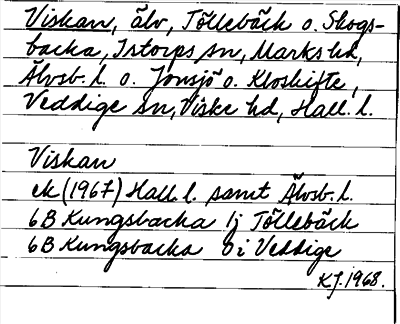 Viskan, älv, Töllebäck o. Skogs-
backa, Istorps sn, Marks hd,
Älvsb. l. o. Jonsjö o. Kloshifte,
Veddige sn, Viske hd, Hall. l.
Viskan
ek (1967) Hall. l. samt Älvsb. l.
6B Kungsbacka 1j Töllebäck
6B Kungsbacka 0i Veddige
KJ. 1968.